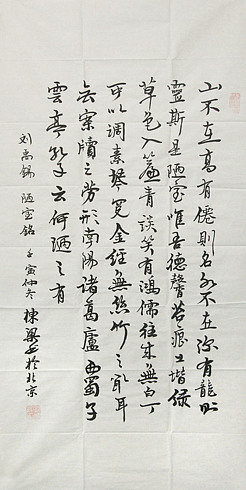 山不在高有僊則名水不在深有龍則
靈斯是陋室唯吾德馨苔痕上堦緑
草色入簾青談笑有鴻儒往來無白丁
可以調素琴閱金經無絲竹之亂耳
無案牘之勞形南陽諸葛廬西蜀子
雲亭孔子云何陋之有
刘禹锡 陋室铭 壬寅仲冬 棟梁书於北京